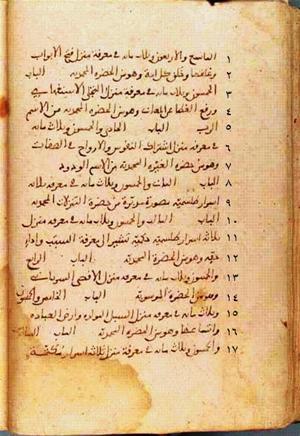 ١ التاسع والاربعون وثلاث مائة في معرفة منزل فتح الابواب
٢ وغلقها وخلق كل امة وهو من الحضرة المحمدية الباب
٣ الخمسون وثلاث مائة في معرفة منزل تجلي الاستفهام
٤ ورفع الغطا عن المعاني وهو من الحضرة المحمدية من الاسم
٥ الرب الباب الحادي والخمسون وثلاث مائة
٦ في معرفة منزل اشتراك النفوس والارواح في الصفات
٧ وهو من حضرة الغيرة المحمدية من الاسم الودود
٨ الباب الثاني والخمسون وثلاث مائة في معرفة ثلاثة
٩ اسرار طلسمية مصورة مدبرة من حضرة التنزلات المحمدية
١٠ الباب الثالث والخمسون وثلاث مائة في معرفة منزل
١١ ثلاثة اسرار طلسمية حكمية تشير الى معرفة السبب وادا
١٢ حقه وهو من الحضرة المحمدية الباب الرابع
١٣ والخمسون وثلاث مائة في معرفة منزل الاقصى السرياني
١٤ وهو من الحضرة الموسوية الباب الخامس والخمسون
١٥ وثلاث مائة في معرفة منزل السبل المولدة وارض العبادة
١٦ واتساعها وهو من الحضرة المحمدية الباب السادس
١٧ والخمسون وثلاث مائة في معرفة منزل ثلاثة اسرار مكتمة